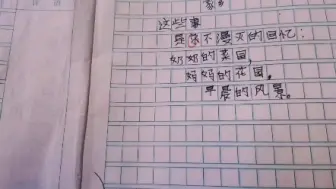 这些事
是我不漫天的回忆：
奶奶的菜园，
妈妈的花园，
早晨的风景。